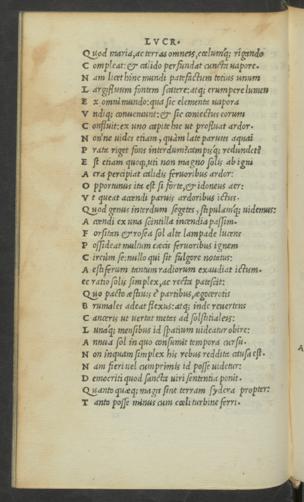 LVCR.
Quod maria, ac terras omneis, cœlumq; rigando
Compleat: & calido perfundat cuncta uapore.
Nam licet hinc mundi patefactum totius unum
Largifluum fontem scatere: atq; erumpere lumen
Ex omni mundo: qua sic elementa uapora
Vndiq; conueniunt: & sic coniectus eorum
Confluit: ex uno capite hic ut profluat ardor.
Nonne uides etiam, quàm late paruus aquai
Prata riget fons interdum? campisq; redundet?
Est etiam quoq; uti non magno solis ab igni
Aera percipiat calidis feruoribus ardor:
Opportunus ita est si forte, & idoneus aer:
Vt queat accendi paruis ardoribus ictus.
Quod genus interdum segetes, stipulamq; uidemus:
Accendi ex una scintilla incendia passim.
Forsitan & rosea sol alte lampade lucens
Possideat multum cæcis feruoribus ignem
Circum se: nullo qui sit fulgore notatus:
Aestiferum tantum radiorum exaudiat ictum.
ec ratio solis simplex, ac recta patescit:
Quo pacto æstiuis è partibus, ægocerotis
Brumales adeat flexus: atq; inde reuertens
Canceris ut uertat metas ad solstitialeis:
Lunaq; mensibus id spatium uideatur obire:
Annua sol in quo consumit tempora cursu.
Non inquam simplex his rebus reddita causa est.
Nam fieri uel cumprimis id posse uidetur:
Democriti quod sancta uiri sententia ponit.
Quanto quæq; magis sint terram sydera propter:
Tanto posse minus cum cœli turbine ferri.